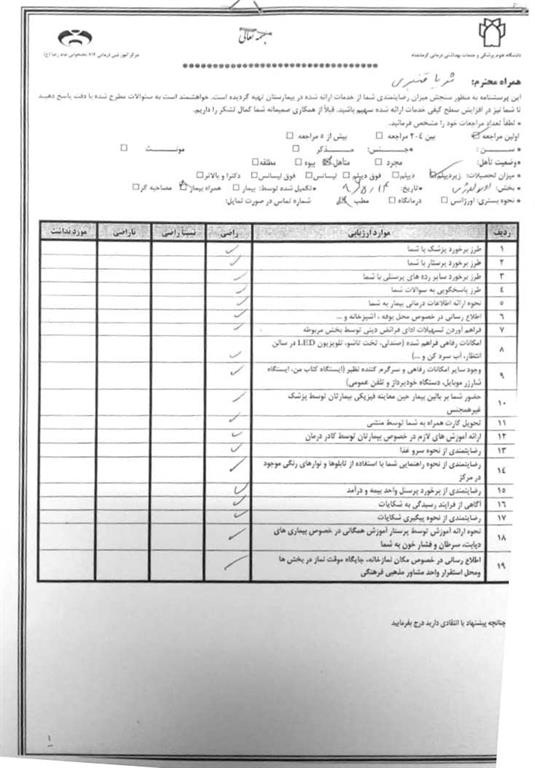 بسمه تعالی
دانشگاه علوم پزشکی و خدمات بهداشتی درمانی کرمانشاه
همراه محترم:
این پرسشنامه به منظور سنجش میزان رضایتمندی شما از خدمات ارائه شده در بیمارستان تهیه گردیده است. خواهشمند است به سئوالات مطرح شده با دقت پاسخ دهید
تا شما نیز در افزایش سطح کیفی خدمات ارائه شده سهیم باشید. قبلاً از همکاری صمیمانه شما کمال تشکر را داریم.
* لطفاً تعداد مراجعات خود را مشخص فرمائید.
اولین مراجعه بین ۲-۴ مراجعه بیش از ۵ مراجعه
* سن: * جنس: مذکر مونث
* وضعیت تأهل: مجرد متأهل بیوه مطلقه
* میزان تحصیلات: زیردیپلم دیپلم فوق دیپلم لیسانس فوق لیسانس دکترا و بالاتر
* بخش: * تاریخ: * تکمیل شده توسط: بیمار همراه بیمار مصاحبه گر
* نحوه بستری: اورژانس درمانگاه مطب شماره تماس در صورت تمایل:
ردیف موارد ارزیابی راضی نسبتاً راضی ناراضی مورد نداشت
۱ طرز برخورد پزشک با شما
۲ طرز برخورد پرستار با شما
۳ طرز برخورد سایر رده های پرسنلی با شما
۴ طرز پاسخگویی به سوالات شما
۵ نحوه ارائه اطلاعات درمانی بیمار به شما
۶ اطلاع رسانی در خصوص محل بوفه ، آشپزخانه و ...
۷ فراهم آوردن تسهیلات ادای فرائض دینی توسط بخش مربوطه
۸ امکانات رفاهی فراهم شده (صندلی، تخت تاشو، تلویزیون LED در سالن
انتظار، آب سرد کن و ...)
۹ وجود سایر امکانات رفاهی و سرگرم کننده نظیر (ایستگاه کتاب من، ایستگاه
شارژر موبایل، دستگاه خودپرداز و تلفن عمومی)
۱۰ حضور شما بر بالین بیمار حین معاینه فیزیکی بیمارتان توسط پزشک
غیرهمجنس
۱۱ تحویل کارت همراه به شما توسط منشی
۱۲ ارائه آموزش های لازم در خصوص بیمارتان توسط کادر درمان
۱۳ رضایتمندی از نحوه سرو غذا
۱۴ رضایتمندی از نحوه راهنمایی شما با استفاده از تابلوها و نوارهای رنگی موجود
در مرکز
۱۵ رضایتمندی از برخورد پرسنل واحد بیمه و درآمد
۱۶ آگاهی از فرایند رسیدگی به شکایات
۱۷ رضایتمندی از نحوه پیگیری شکایات
۱۸ نحوه ارائه آموزش توسط پرستار آموزش همگانی در خصوص بیماری های
دیابت، سرطان و فشار خون به شما
۱۹ اطلاع رسانی در خصوص مکان نمازخانه، جایگاه موقت نماز در بخش ها
ومحل استقرار واحد مشاور مذهبی فرهنگی
چنانچه پیشنهاد یا انتقادی دارید درج بفرمایید
۱